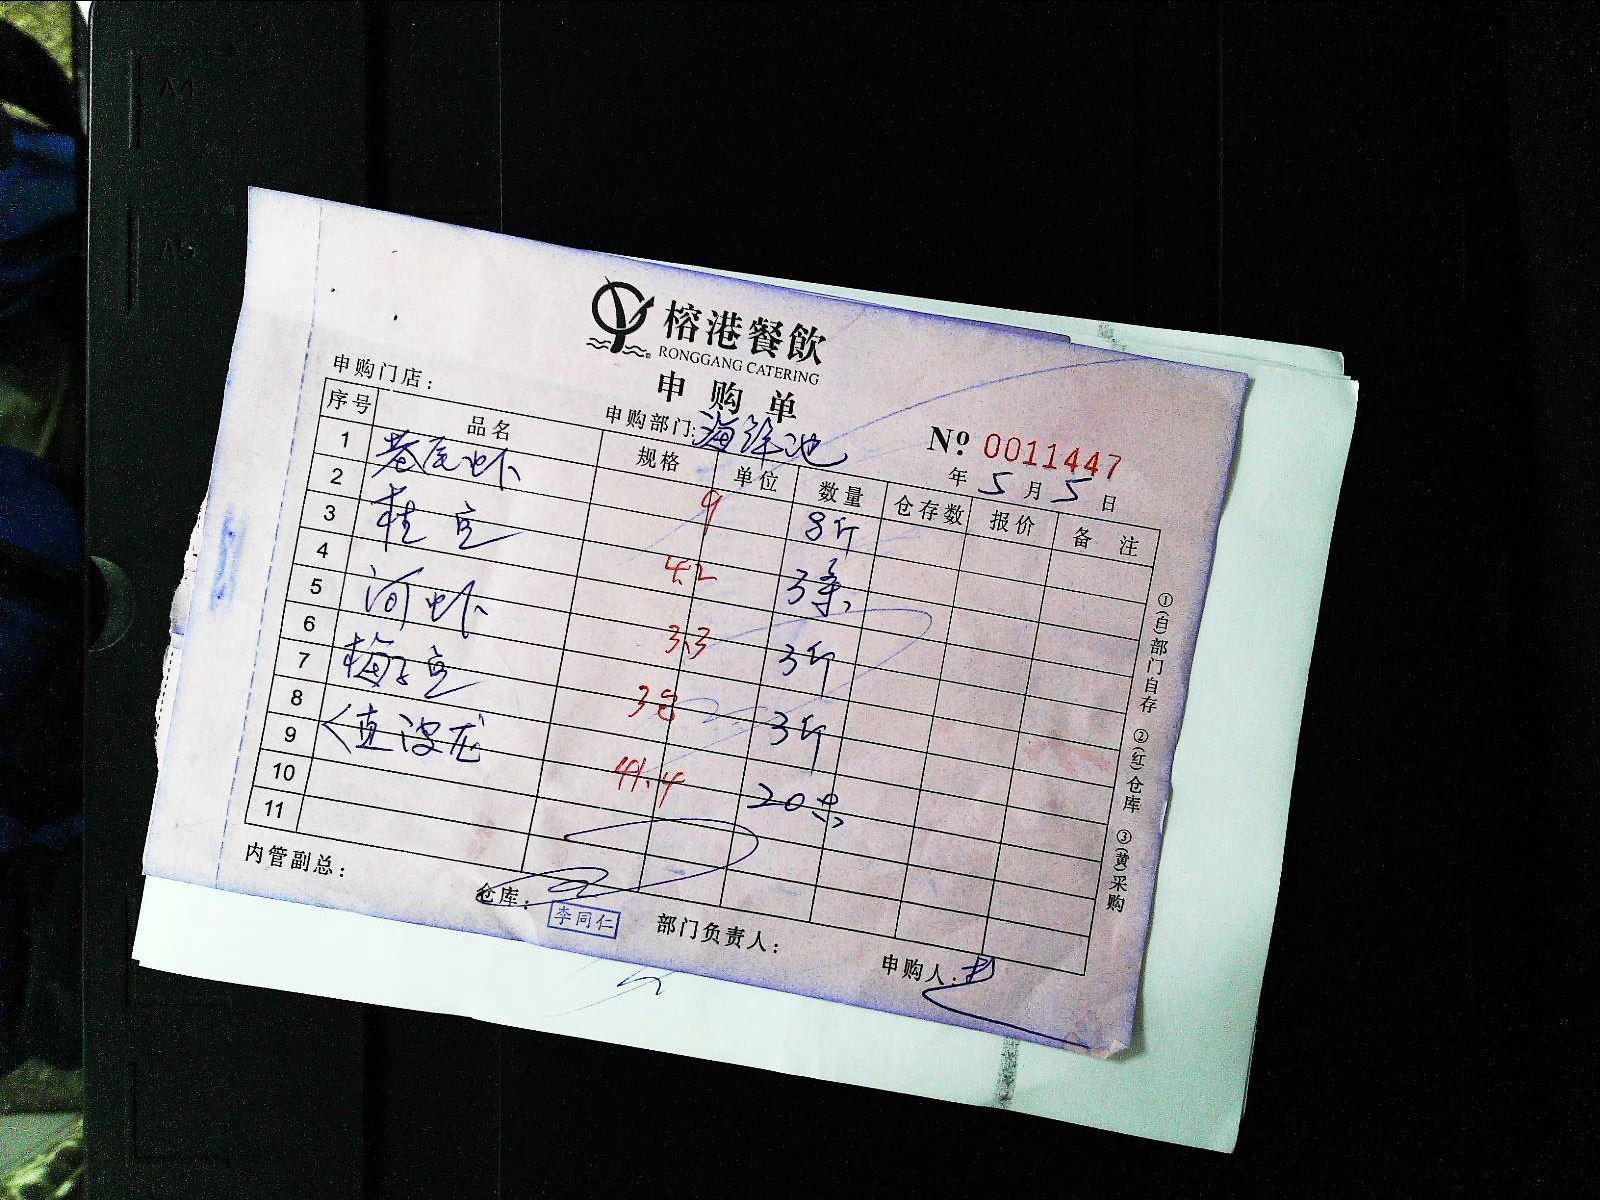 A4
A5
榕港餐飲
RONGGANG CATERING
申购单
申购门店：
申购部门：海鲜池
№ 0011447
年 5 月 5 日
序号 品名 规格 单位 数量 仓存数 报价 备注
1 基尾虾 9 8斤
2
3 桂鱼 4.2 3条
4
5 河虾 3.3 3斤
6
7 梅子鱼 3.8 3斤
8
9 波龙 41.4 20只
10
11
①(白)部门自存 ②(红)仓库 ③(黄)采购
内管副总：
仓库：
李同仁
部门负责人：
申购人：